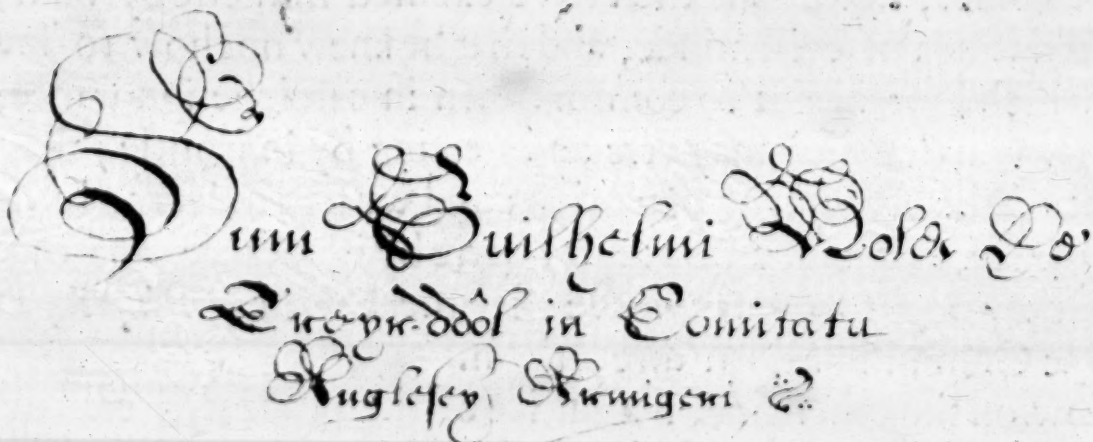 Sum Guilhelmi Bolde De
Treyr-ddôl in Comitatu
Anglesey Armigeri